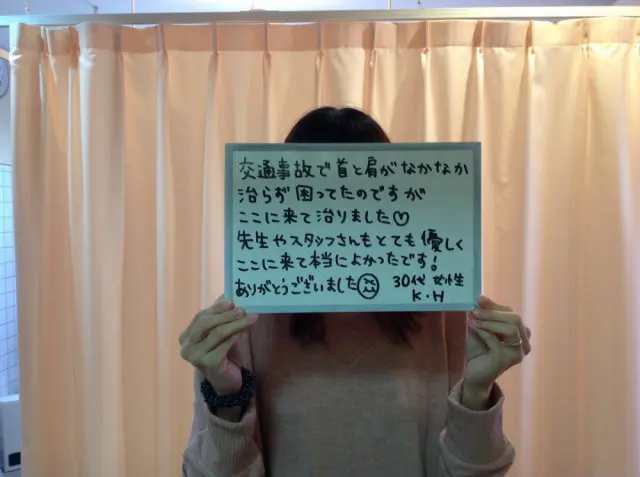 交通事故で首と肩がなかなか
治らず困ってたのですが
ここに来て治りました♡
先生やスタッフさんもとても優しく
ここに来て本当によかったです!
ありがとうございました 30代 女性
K・H